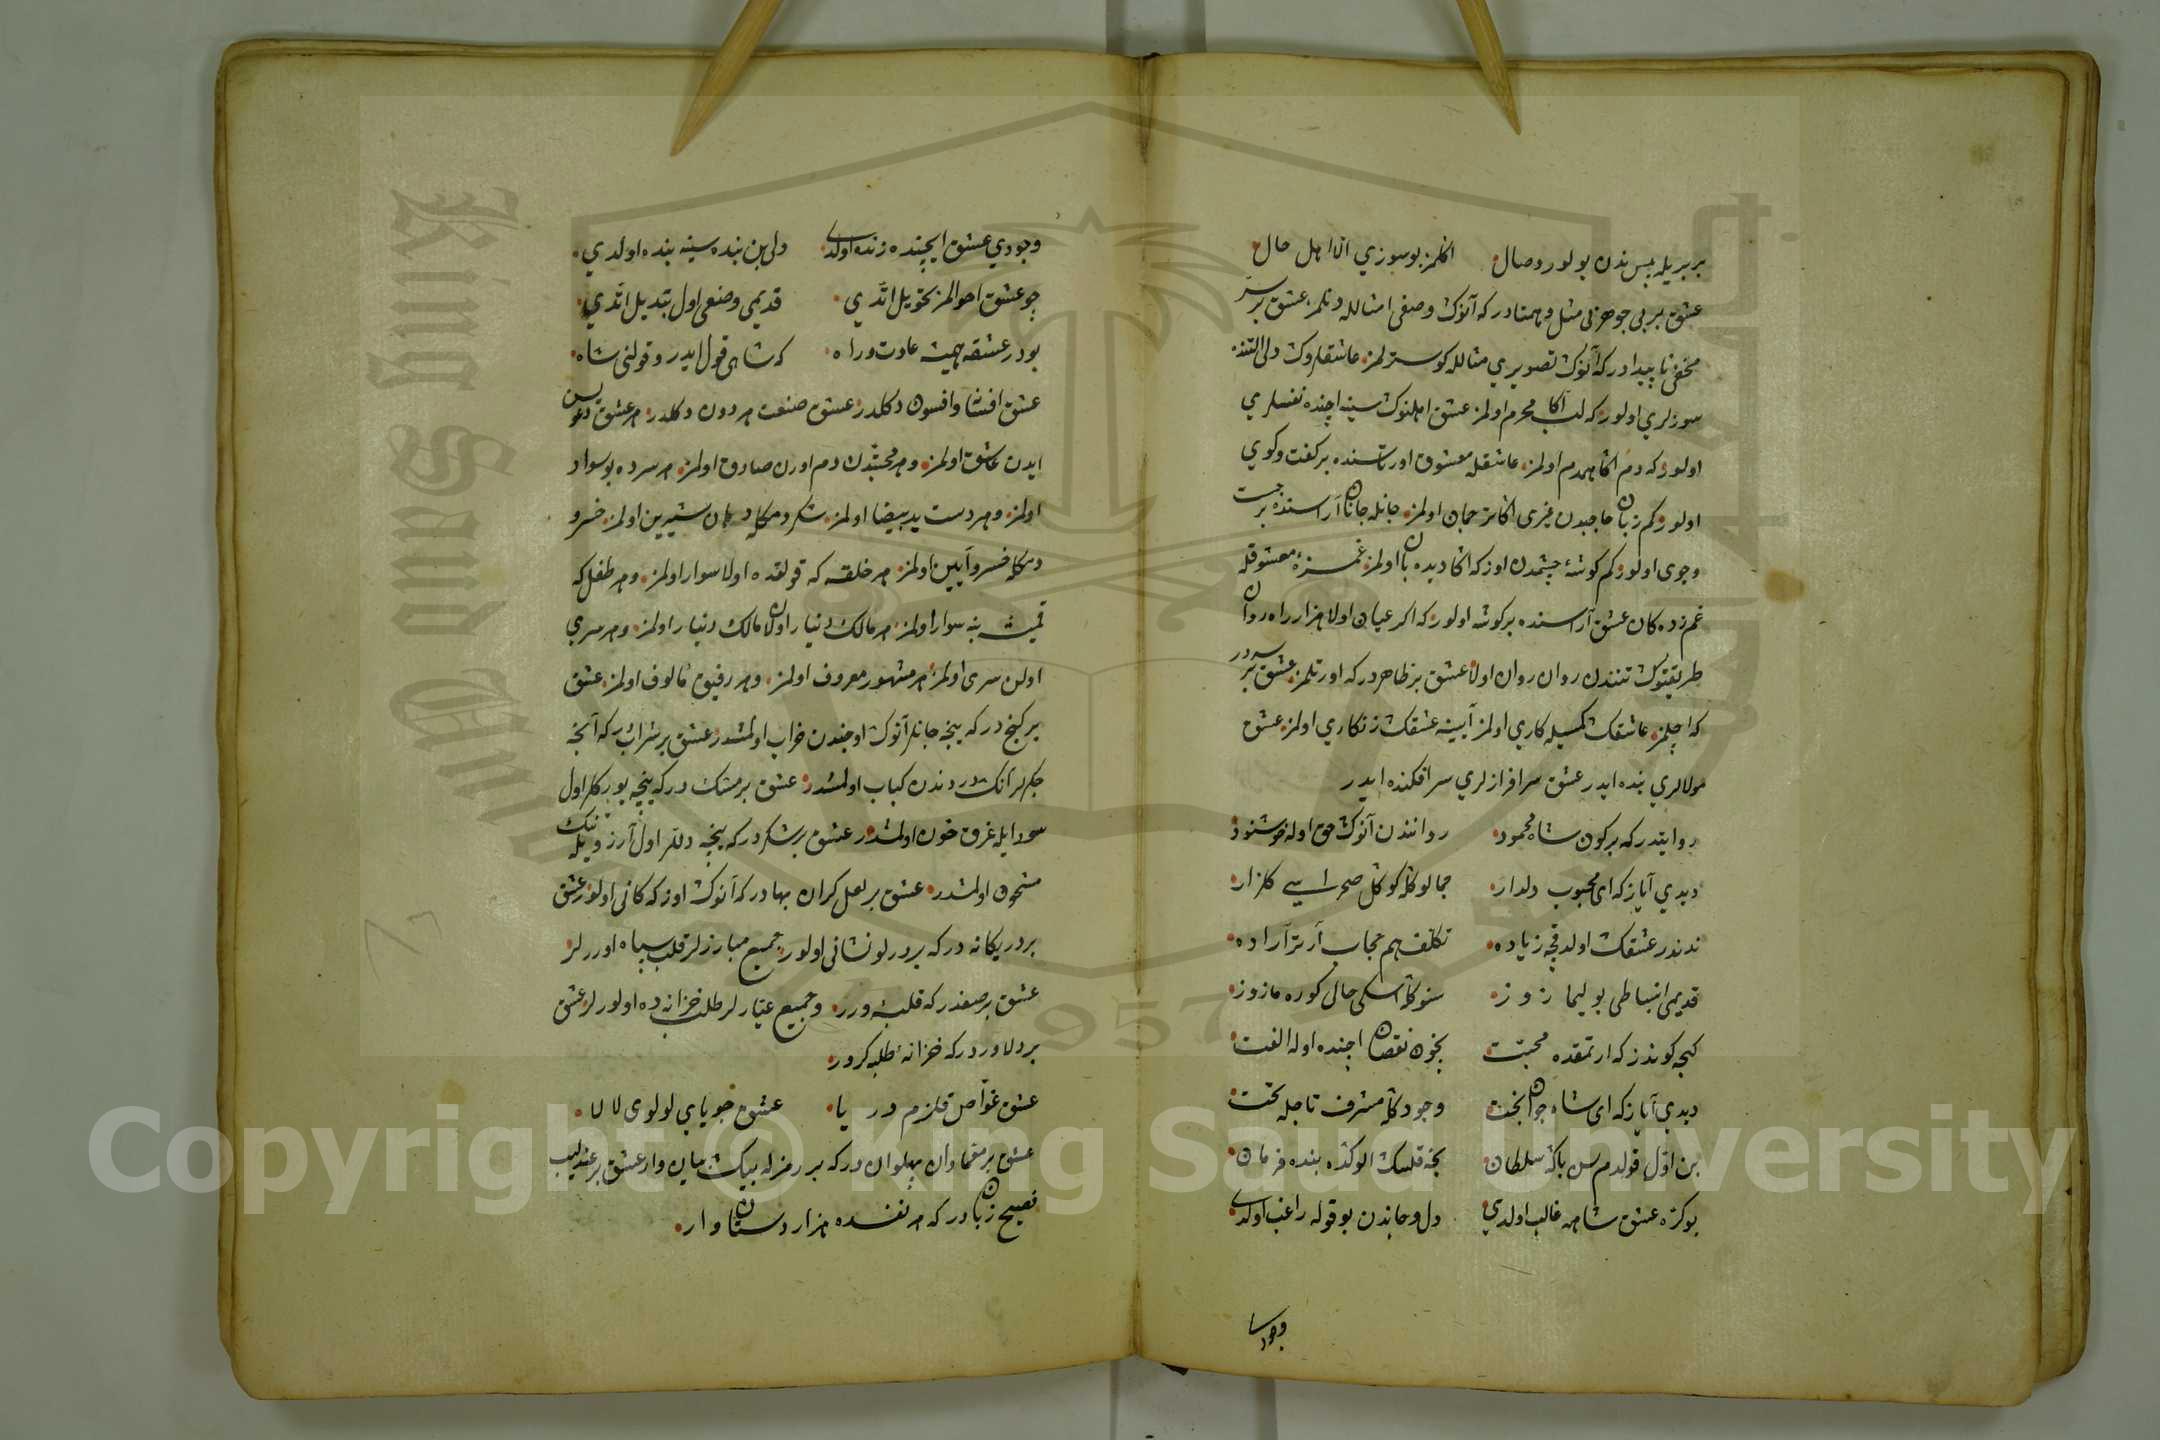 بربریله بس ندن بولور وصال اکلمز بو سوزي الا اهل حال
عشق بر بی جوهر بی مثل و همتادر که آنوك وصفی امثالله دنلمز عشق بر سر
مخفی ناپیدادر که آنوك تصویري مثالله کوسترلمز عاشقلروك دلی التنده
سوزلري اولور که لب اکا محرم اولمز عشق اهلنوك سینه اجنده نفسلري
اولور که دم اکا همدم اولمز عاشقله معشوق اورتاسنده بر کفت و کوي
اولور کم زبان حاجبدن غیری اکا ترجمان اولمز جانله جانان آراسنده بر جست
وجوی اولور کم کوشهٔ چشمدن اوزکه اکا دیده بان اولمز غمزهٔ معشوقله
غم زده کان عشق آراسنده بر کوشه اولور که اکر عیان اولا هزار راه روان
طریقتوك تنندن روان روان اولا عشق بر ظاهردر که اورتلمز عشق بر سردر
که اچلمز عاشقك کمسیله کاري اولمز آیینه عشقك زنکاري اولمز عشق
مولالري بنده ایدر عشق سرافرازلري سرافکنده ایدر
روایتدر که بر کون شاه محمود روانندن آنوك حق اوله خوشنود
دیدي آیاز که ای محبوب دلدار جمالوکله کوکل صحراسی کلزار
ندندر عشقك اولدقچه زیاده تکلف هم حجاب آرتر آراده
قدیمی انبساطی بولیماز روز سنوکله اسکی حال کوره مازوز
کیجه کوندز که ارتمقده محبت نیچون نقصان اجنده اوله الفت
دیدي آیاز که ای شاه جوان بخت وجودکله مشرف تاجله تخت
بن اول قولدم سن باکه سلطان نجه قلسك الوکده بنده فرمان
بو کزه عشق شاهه غالب اولدي دل و جاندن بو قوله راغب اولدي
وجودي
وجودي عشق ایچنده زنده اولدي ولی بن بنده سینه بنده اولدي
چو عشق احوالمز تحویل اتدي قدیمی وضعی اول تبدیل اتدي
بودر عشقه همیشه عادت و راه که شاهی قول ایدر و قولنی شاه
عشق افشا و افسون دکلدر عشق صنعت هر دون دکلدر هر عشق دعویسن
ایدن عاشق اولمز و هر محبتدن دم اورن صادق اولمز هر سرده بو سوادا
اولمز و هر دست ید بیضا اولمز شکر دمکله دهان شیرین اولمز خسرو
دمکله خسرو آیین اولمز هر خلقه که قولقده اولا سوار اولمز و هر طفل که
قمیشه بنه سوار اولمز هر مالك دینار اولان مالك دینار اولمز و هر سري
اولن سری اولمز هر مشهور معروف اولمز و هر رفیق مالوف اولمز عشق
بر کنجدر که نیجه جانلر آنوك اوجندن خراب اولمشدر عشق بر شرابدر که آنجه
جکرلر آنك دردندن کباب اولمشدر عشق بر مشکدر که نیچه یورکلر اول
سودایله غرق خون اولمشدر عشق بر شکردر که نیچه دللر اول آرزونیك یله
مشحون اولمشدر عشق بر لعل کران بهادر که آنوك اوزکه کانی اولور عشق
بر در یکانه در که بر درلو نشانی اولور جمیع مبارزلر قلب سپاه اوررلر
عشق بر صفدر که قلبه ورر و جمیع عیارلر طلب خزانه ده اولورلر عشق
بر دلاوردر که خزانهٔ طلبه کرور
عشق غواص قلزم دریا عشق جویاي لولوی لالا
عشق بر مقماوان پهلوان در که بر رمزله بیك میان وار عشق بر عندلیب
فصیح زبان در که هر نفسده هزار دستان وار